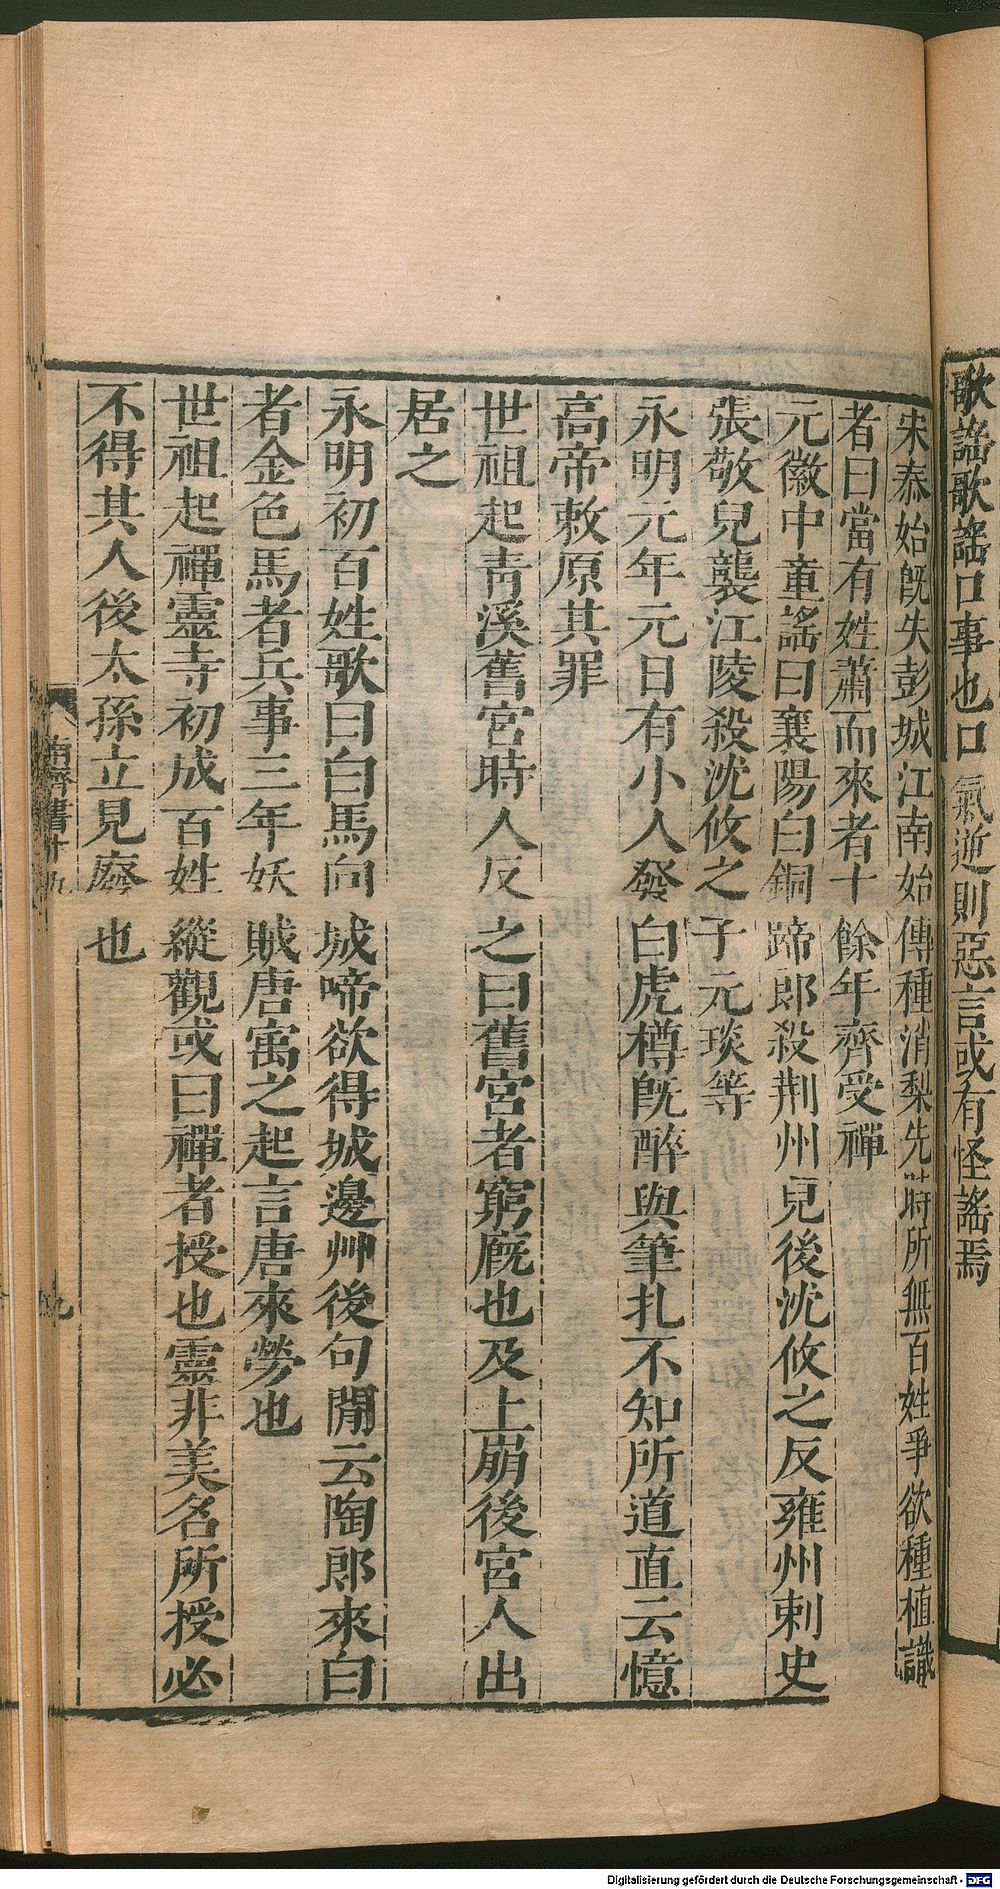 歌謠歌謠口事也口氣逆則惡言或有怪謠焉
宋泰始旣失彭城江南始傳種消梨先時所無百姓爭欲種植識
者曰當有姓蕭而來者十餘年齊受禪
元徽中童謠曰襄陽白銅蹄郎殺荆州兒後沈攸之反雍州刺史
張敬兒襲江陵殺沈攸之子元琰等
永明元年元日有小人發白虎樽旣醉與筆扎不知所道直云憶
高帝敕原其罪
世祖起靑溪舊宮時人反之曰舊宮者窮廐也及上崩後宮人出
居之
永明初百姓歌曰白馬向城啼欲得城邊艸後句閒云陶郎來白
者金色馬者兵事三年妖賊唐㝢之起言唐來勞也
世祖起禪靈寺初成百姓縱觀或曰禪者授也靈非美名所授必
不得其人後太孫立見廢也
南齊書十九
九
Digitalisierung gefördert durch die Deutsche Forschungsgemeinschaft - DFG